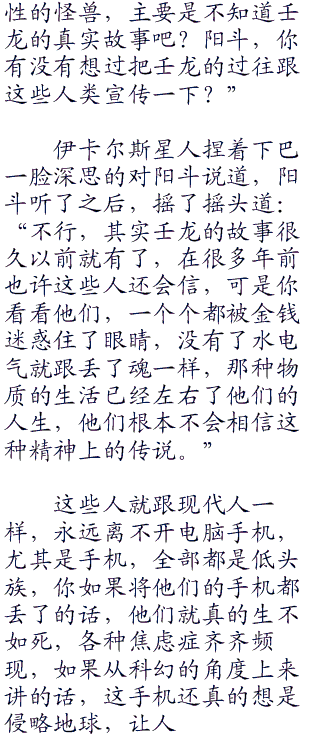 性的怪兽，主要是不知道壬
龙的真实故事吧？阳斗，你
有没有想过把壬龙的过往跟
这些人类宣传一下？”
伊卡尔斯星人捏着下巴
一脸深思的对阳斗说道，阳
斗听了之后，摇了摇头道：
“不行，其实壬龙的故事很
久以前就有了，在很多年前
也许这些人还会信，可是你
看看他们，一个个都被金钱
迷惑住了眼睛，没有了水电
气就跟丢了魂一样，那种物
质的生活已经左右了他们的
人生，他们根本不会相信这
种精神上的传说。”
这些人就跟现代人一
样，永远离不开电脑手机，
尤其是手机，全部都是低头
族，你如果将他们的手机都
丢了的话，他们就真的生不
如死，各种焦虑症齐齐频
现，如果从科幻的角度上来
讲的话，这手机还真的想是
侵略地球，让人